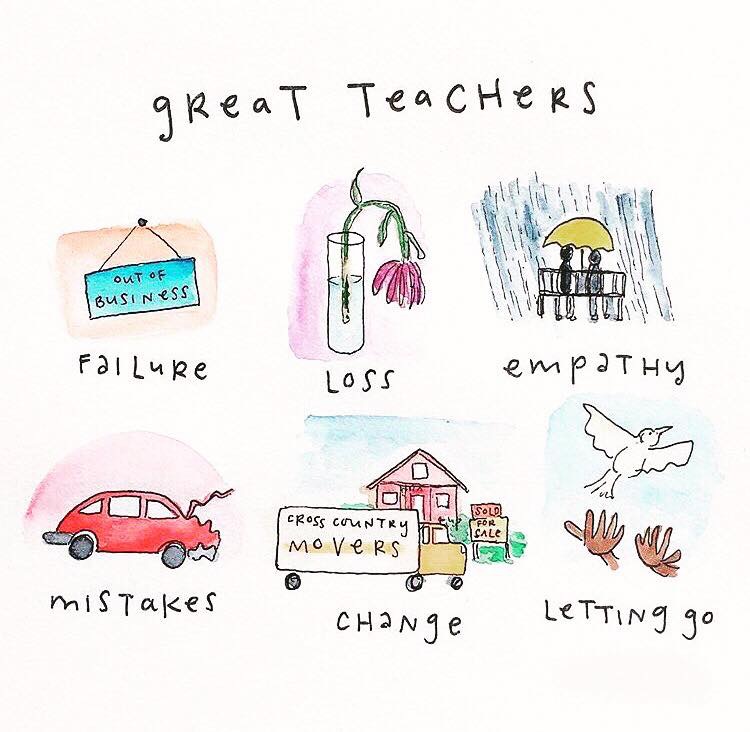 gReaT TeaCHeRS
OUT OF
BUSINESS
FaILURe
LOSS
empaTHy
CROSS COUNTRY
MOVERS
SOLD
FOR
SALE
mISTakeS
CHaNge
LeTTINg go